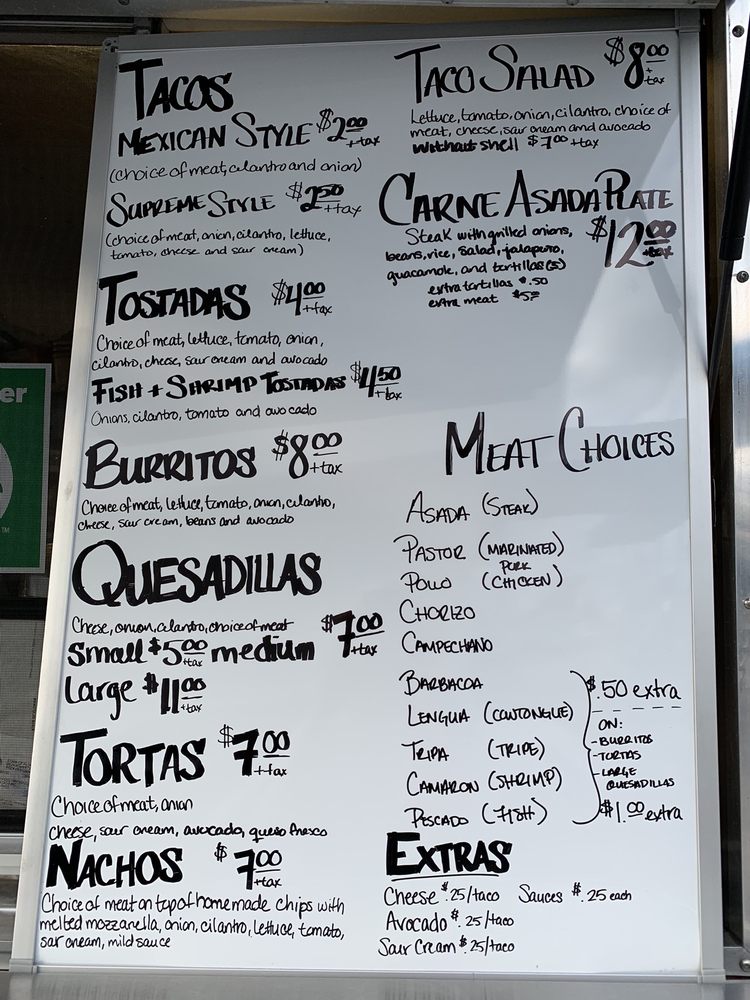 TACOS
MEXICAN STYLE $2.00 +tax
(choice of meat, cilantro and onion)
SUPREME STYLE $2.50 +tax
(choice of meat, onion, cilantro, lettuce,
tomato, cheese and sour cream)
TOSTADAS $4.00 +tax
Choice of meat, lettuce, tomato, onion,
cilantro, cheese, sour cream and avocado
FISH + SHRIMP TOSTADAS $4.50 +tax
Onions, cilantro, tomato and avocado
BURRITOS $8.00 +tax
Choice of meat, lettuce, tomato, onion, cilantro,
cheese, sour cream, beans and avocado
QUESADILLAS
Cheese, onion, cilantro, choice of meat
Small $5.00 +tax medium $7.00 +tax
Large $11.00 +tax
TORTAS $7.00 +tax
Choice of meat, onion
cheese, sour cream, avocado, queso fresco
NACHOS $7.00 +tax
Choice of meat on top of homemade chips with
melted mozzarella, onion, cilantro, lettuce, tomato,
sour cream, mild sauce
TACO SALAD $8.00 + tax
Lettuce, tomato, onion, cilantro, choice of
meat, cheese, sour cream and avocado
without shell $7.00 +tax
CARNE ASADA PLATE
$12.00 +tax
Steak with grilled onions,
beans, rice, salad, jalapeno,
guacamole, and tortillas(5)
extra tortillas $.50
extra meat $5.00
MEAT CHOICES
ASADA (STEAK)
PASTOR (MARINATED PORK)
POLLO (CHICKEN)
CHORIZO
CAMPECHANO
BARBACOA
LENGUA (COWTONGUE)
TRIPA (TRIPE)
CAMARON (SHRIMP)
PESCADO (FISH)
$.50 extra
ON:
-BURRITOS
-TORTAS
-LARGE
QUESADILLAS
$1.00 extra
EXTRAS
Cheese $.25/taco Sauces $.25 each
Avocado $.25/taco
Sour Cream $.25/taco
er
TM